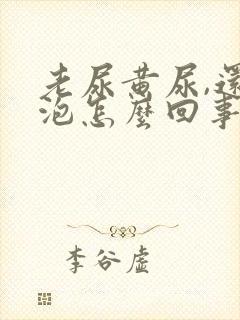 老尿黄尿,還
泡怎麼回事
李谷虚